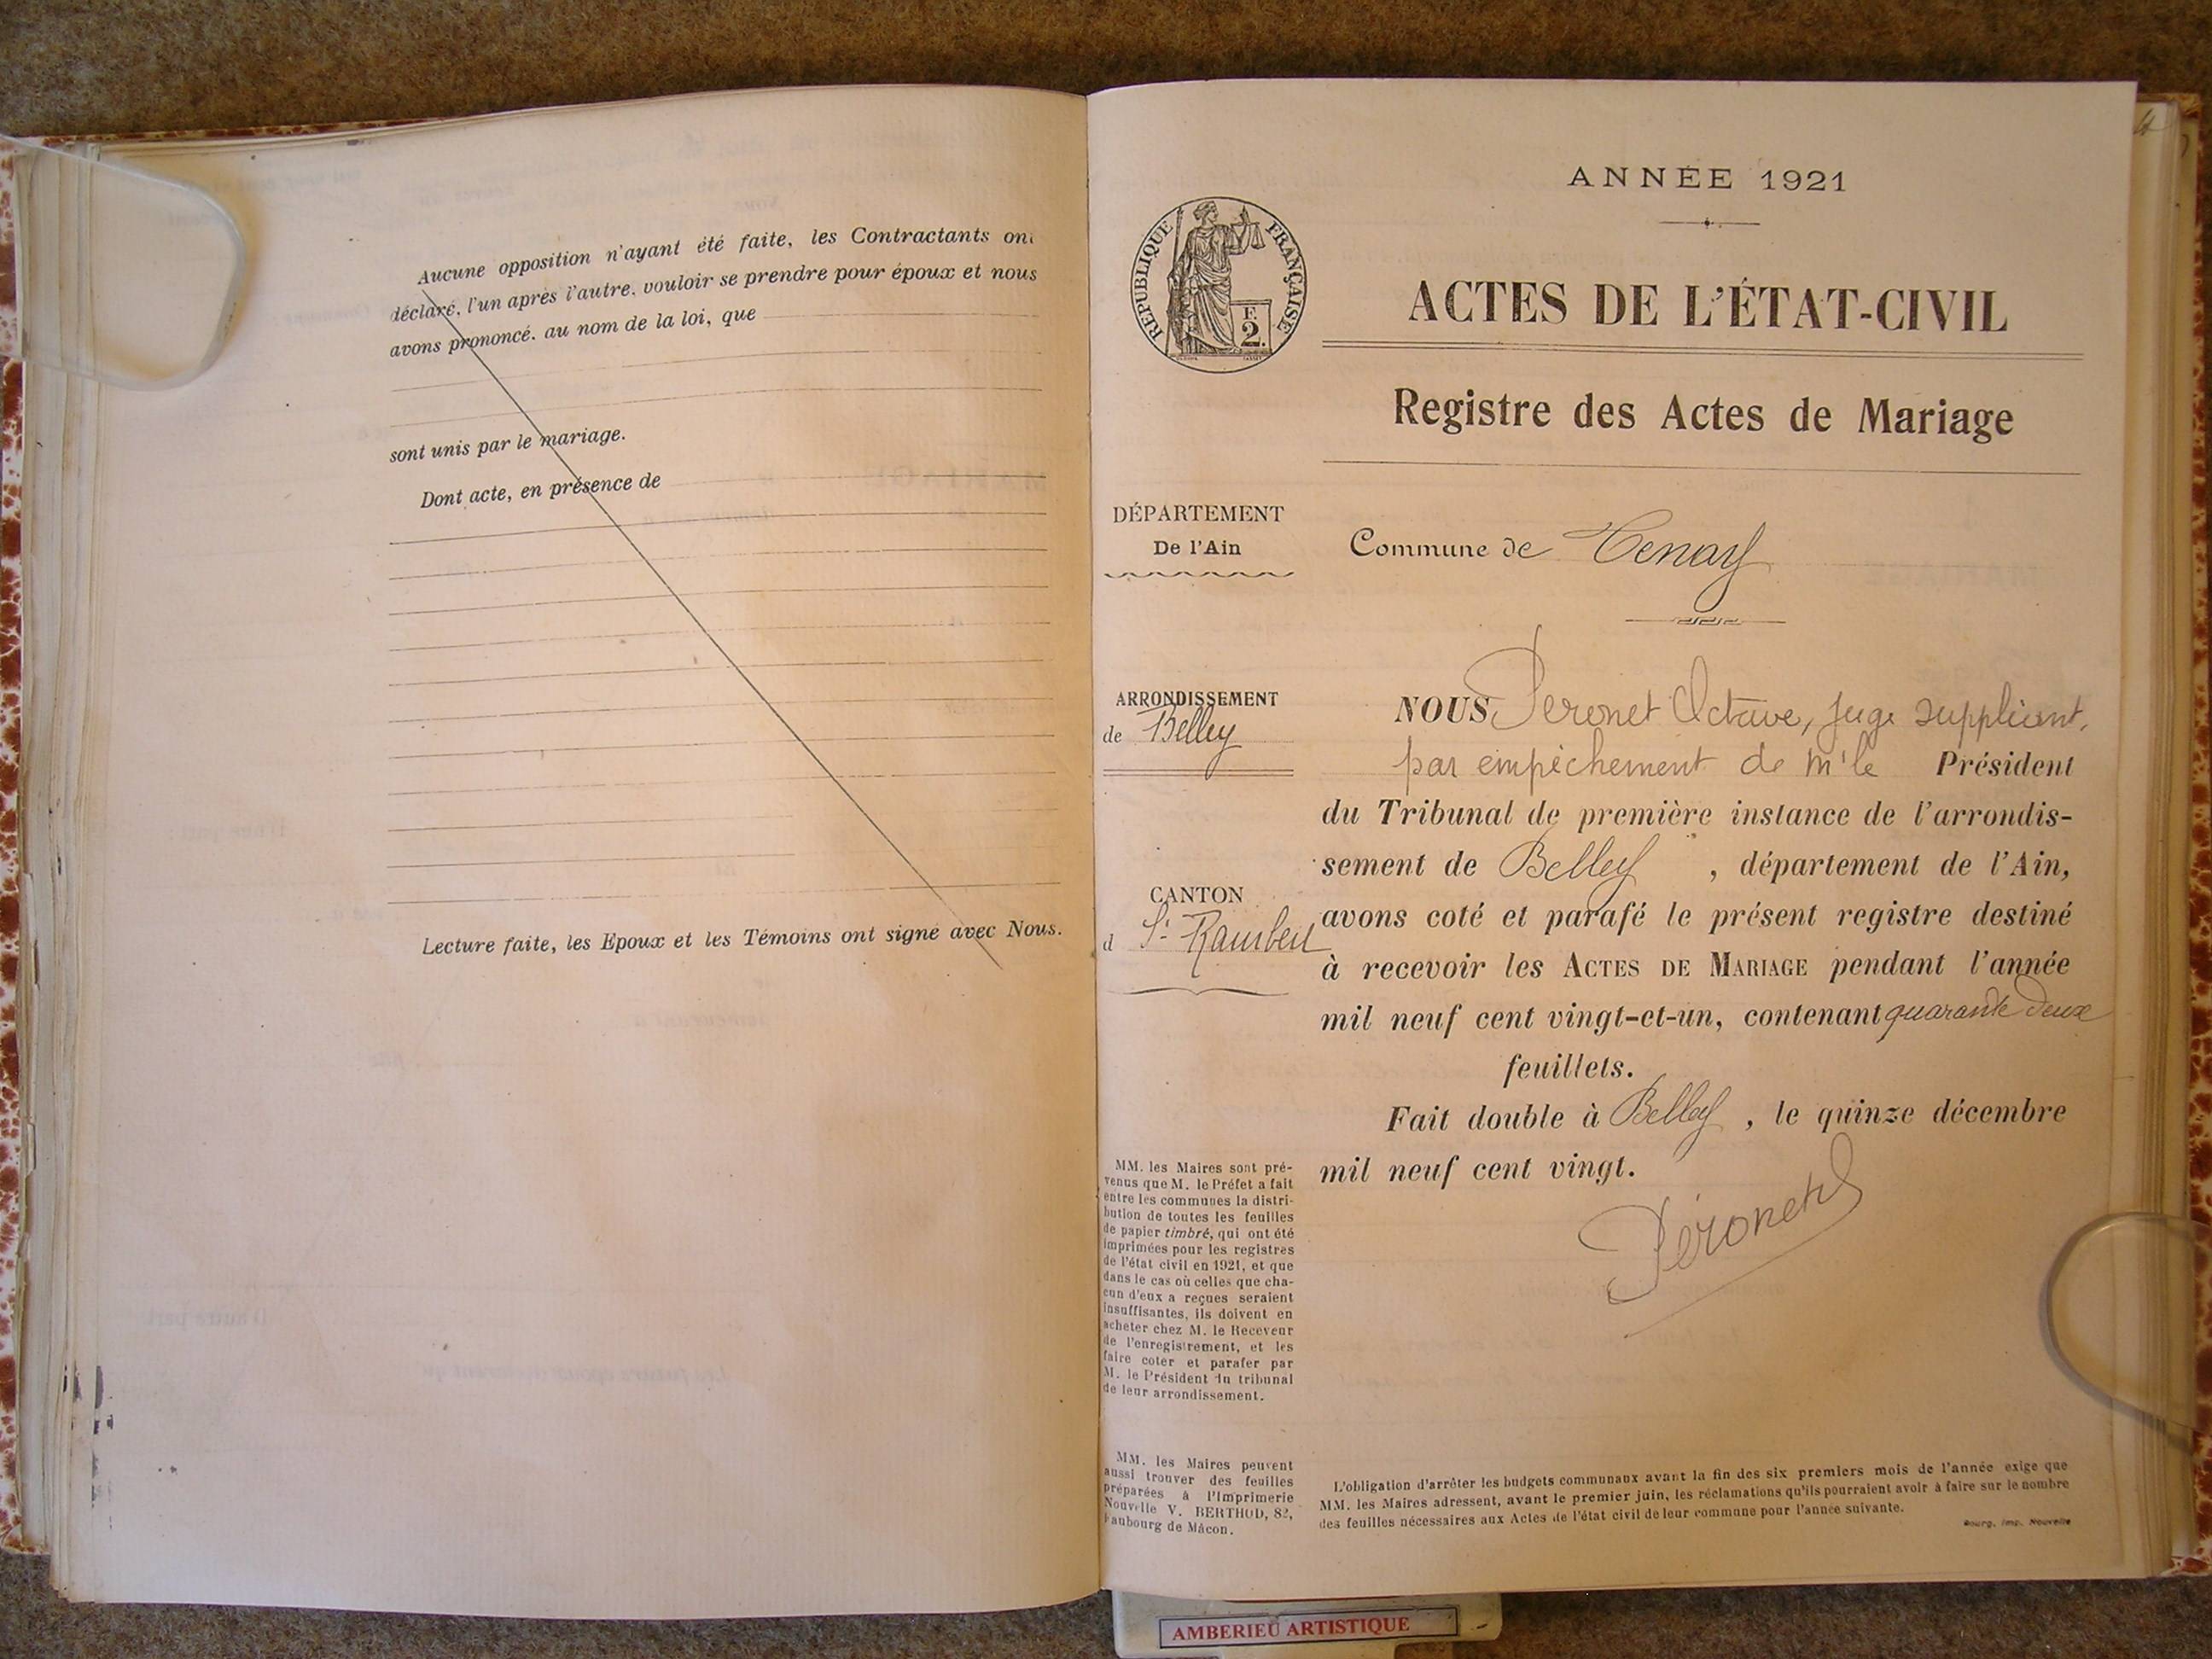 Aucune opposition n'ayant été faite, les Contractants ont
déclaré, l'un après l'autre, vouloir se prendre pour époux et nous
avons prononcé, au nom de la loi, que
sont unis par le mariage.
Dont acte, en présence de
Lecture faite, les Epoux et les Témoins ont signé avec Nous.
ANNÉE 1921
RÉPUBLIQUE FRANÇAISE
F.
2.
ACTES DE L'ÉTAT-CIVIL
Registre des Actes de Mariage
DÉPARTEMENT
De l'Ain
Commune de Tenay
ARRONDISSEMENT
de Belley
CANTON
d St Rambert
NOUS, Péronet Octave, juge suppléant,
par empêchement de Mr le Président
du Tribunal de première instance de l'arrondis-
sement de Belley, département de l'Ain,
avons coté et parafé le présent registre destiné
à recevoir les ACTES DE MARIAGE pendant l'année
mil neuf cent vingt-et-un, contenant quarante deux
feuillets.
Fait double à Belley, le quinze décembre
mil neuf cent vingt.
Péronet
MM. les Maires sont pré-
venus que M. le Préfet a fait
entre les communes la distri-
bution de toutes les feuilles
de papier timbré, qui ont été
imprimées pour les registres
de l'état civil en 1921, et que
dans le cas où celles que cha-
cun d'eux a reçues seraient
insuffisantes, ils doivent en
acheter chez M. le Receveur
de l'enregistrement, et les
faire coter et parafer par
M. le Président du tribunal
de leur arrondissement.
MM. les Maires peuvent
aussi trouver des feuilles
préparées à l'Imprimerie
Nouvelle V. BERTHOD, 82,
Faubourg de Mâcon.
L'obligation d'arrêter les budgets communaux avant la fin des six premiers mois de l'année exige que
MM. les Maires adressent, avant le premier juin, les réclamations qu'ils pourraient avoir à faire sur le nombre
des feuilles nécessaires aux Actes de l'état civil de leur commune pour l'année suivante.
Bourg, Imp. Nouvelle
AMBERIEU ARTISTIQUE